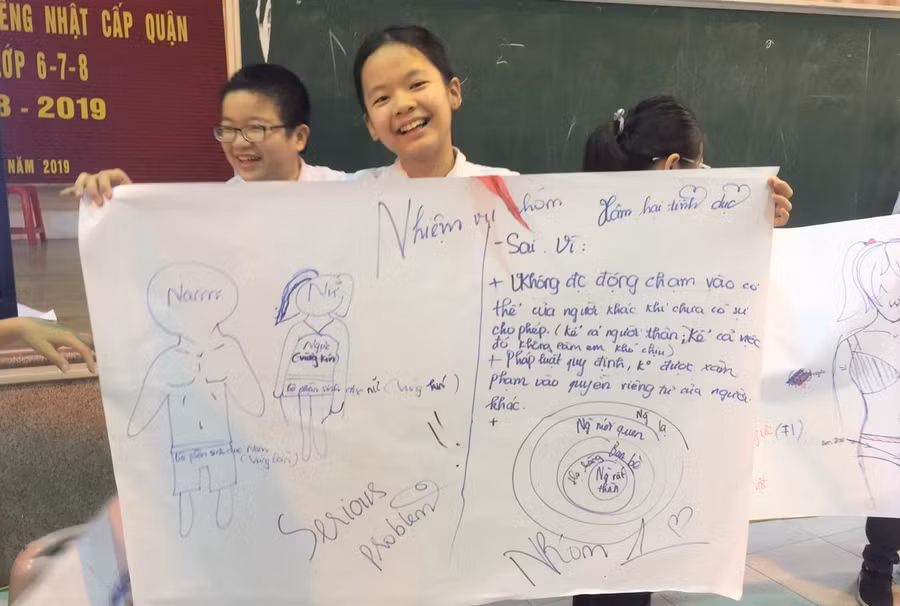 ẾNG NHẬT CẤP QUẬN
ỚP 6-7-8
- 2019
NĂM 2019
Nhiệm vụ nhóm
Nam
Nữ
Ngực
(vùng kín)
Bộ phận sinh dục nữ (vùng kín)
Bộ phận sinh dục nam
(vùng kín)
!!
Serious
problem
Xâm hại tình dục
- Sai. Vì:
+ Không đc động chạm vào cơ
thể của người khác khi chưa có sự
cho phép. (kể cả người thân; kể cả việc
đó không làm em khó chịu)
+ Pháp luật quy định, ko được xâm
phạm vào quyền riêng tư của người
khác.
+
Ng lạ
Ng mới quen
Bạn bè
Họ hàng
Ng rất
thân
Nhóm 1